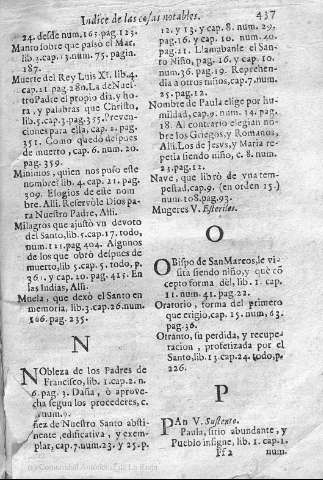 Indice de las cosas notables. 437
24. desde num. 163. pag. 123.
Manto sobre que passò el Mar,
lib. 3. cap. 13. num. 75. pagin.
187.
Muerte del Rey Luis XI. lib. 4.
cap. 21 pag. 280. La de Nues-
tro Padre el propio dia, y ho-
ra, y palabras que Christo,
lib. 5. cap. 3. pag. 355. Preven-
ciones para ella, cap. 2. pag.
351. Como quedò despues
de muerto, cap. 6. num. 20.
pag. 359.
Minimos, quien nos puso este
nombre? lib. 4. cap. 21. pag.
309. Elogios de este nom-
bre. Alli. Reservòle Dios pa-
ra Nuestro Padre, Alli.
Milagros que ajustò vn devoto
del Santo, lib. 5. cap. 17. todo,
num. 111. pag 404. Algunos
de los que obrò despues de
muerto, lib. 5. cap. 5. todo, p.
36. y cap. 20. pag. 415. En
las Indias, Alli.
Muela, que dexò el Santo en
memoria, lib. 3. cap. 26. num.
166. pag. 235.
N
NObleza de los Padres de
Francisco, lib. 1. cap. 2. n.
6. pag. 3. Daña, ò aprove-
cha segun los procederes, c.
num. 9.
ñez de Nuestro Santo absti-
nente, edificativa, y exem-
plar, cap. 7. num. 23. y 25. p.
12. y 13. y cap. 8. num. 29.
pag. 16. y cap. 10. num. 20.
pag. 21. Llamabanle el San-
to Niño, pag. 16. y cap. 10.
num. 36. pag. 19. Reprehen-
dia a otros niños, cap. 7. num.
25. pag. 12.
Nombre de Paula elige por hu-
mildad, cap. 9. num. 34. pag.
18. Al contrario elegian nõ-
bre los Griegos, y Romanos,
Alli. Los de Jesus, y Maria re-
petia siendo niño, c. 8. num.
25. pag. 12.
Nave, que librò de vna tem-
pestad, cap. 9. (en orden 15.)
num. 108. pag. 93.
Mugeres V. Esteriles.
O
OBispo de San Marcos, le vi-
sita siendo niño, y què cõ-
cepto forma dèl, lib. 1. cap.
11. num. 41. pag. 22.
Oratorio, forma del primero
que erigio, cap. 15. num, 63.
pag. 36.
Otranto, su perdida, y recupe-
racion, profetizada por el
Santo, lib. 13. cap. 24. todo, p.
226.
P
PAn V. Sustento.
Paula, sitio abundante, y
Pueblo insigne, lib. 1. cap. 1.
Ff 2 num.
(c) Comunidad Autónoma de La Rioja